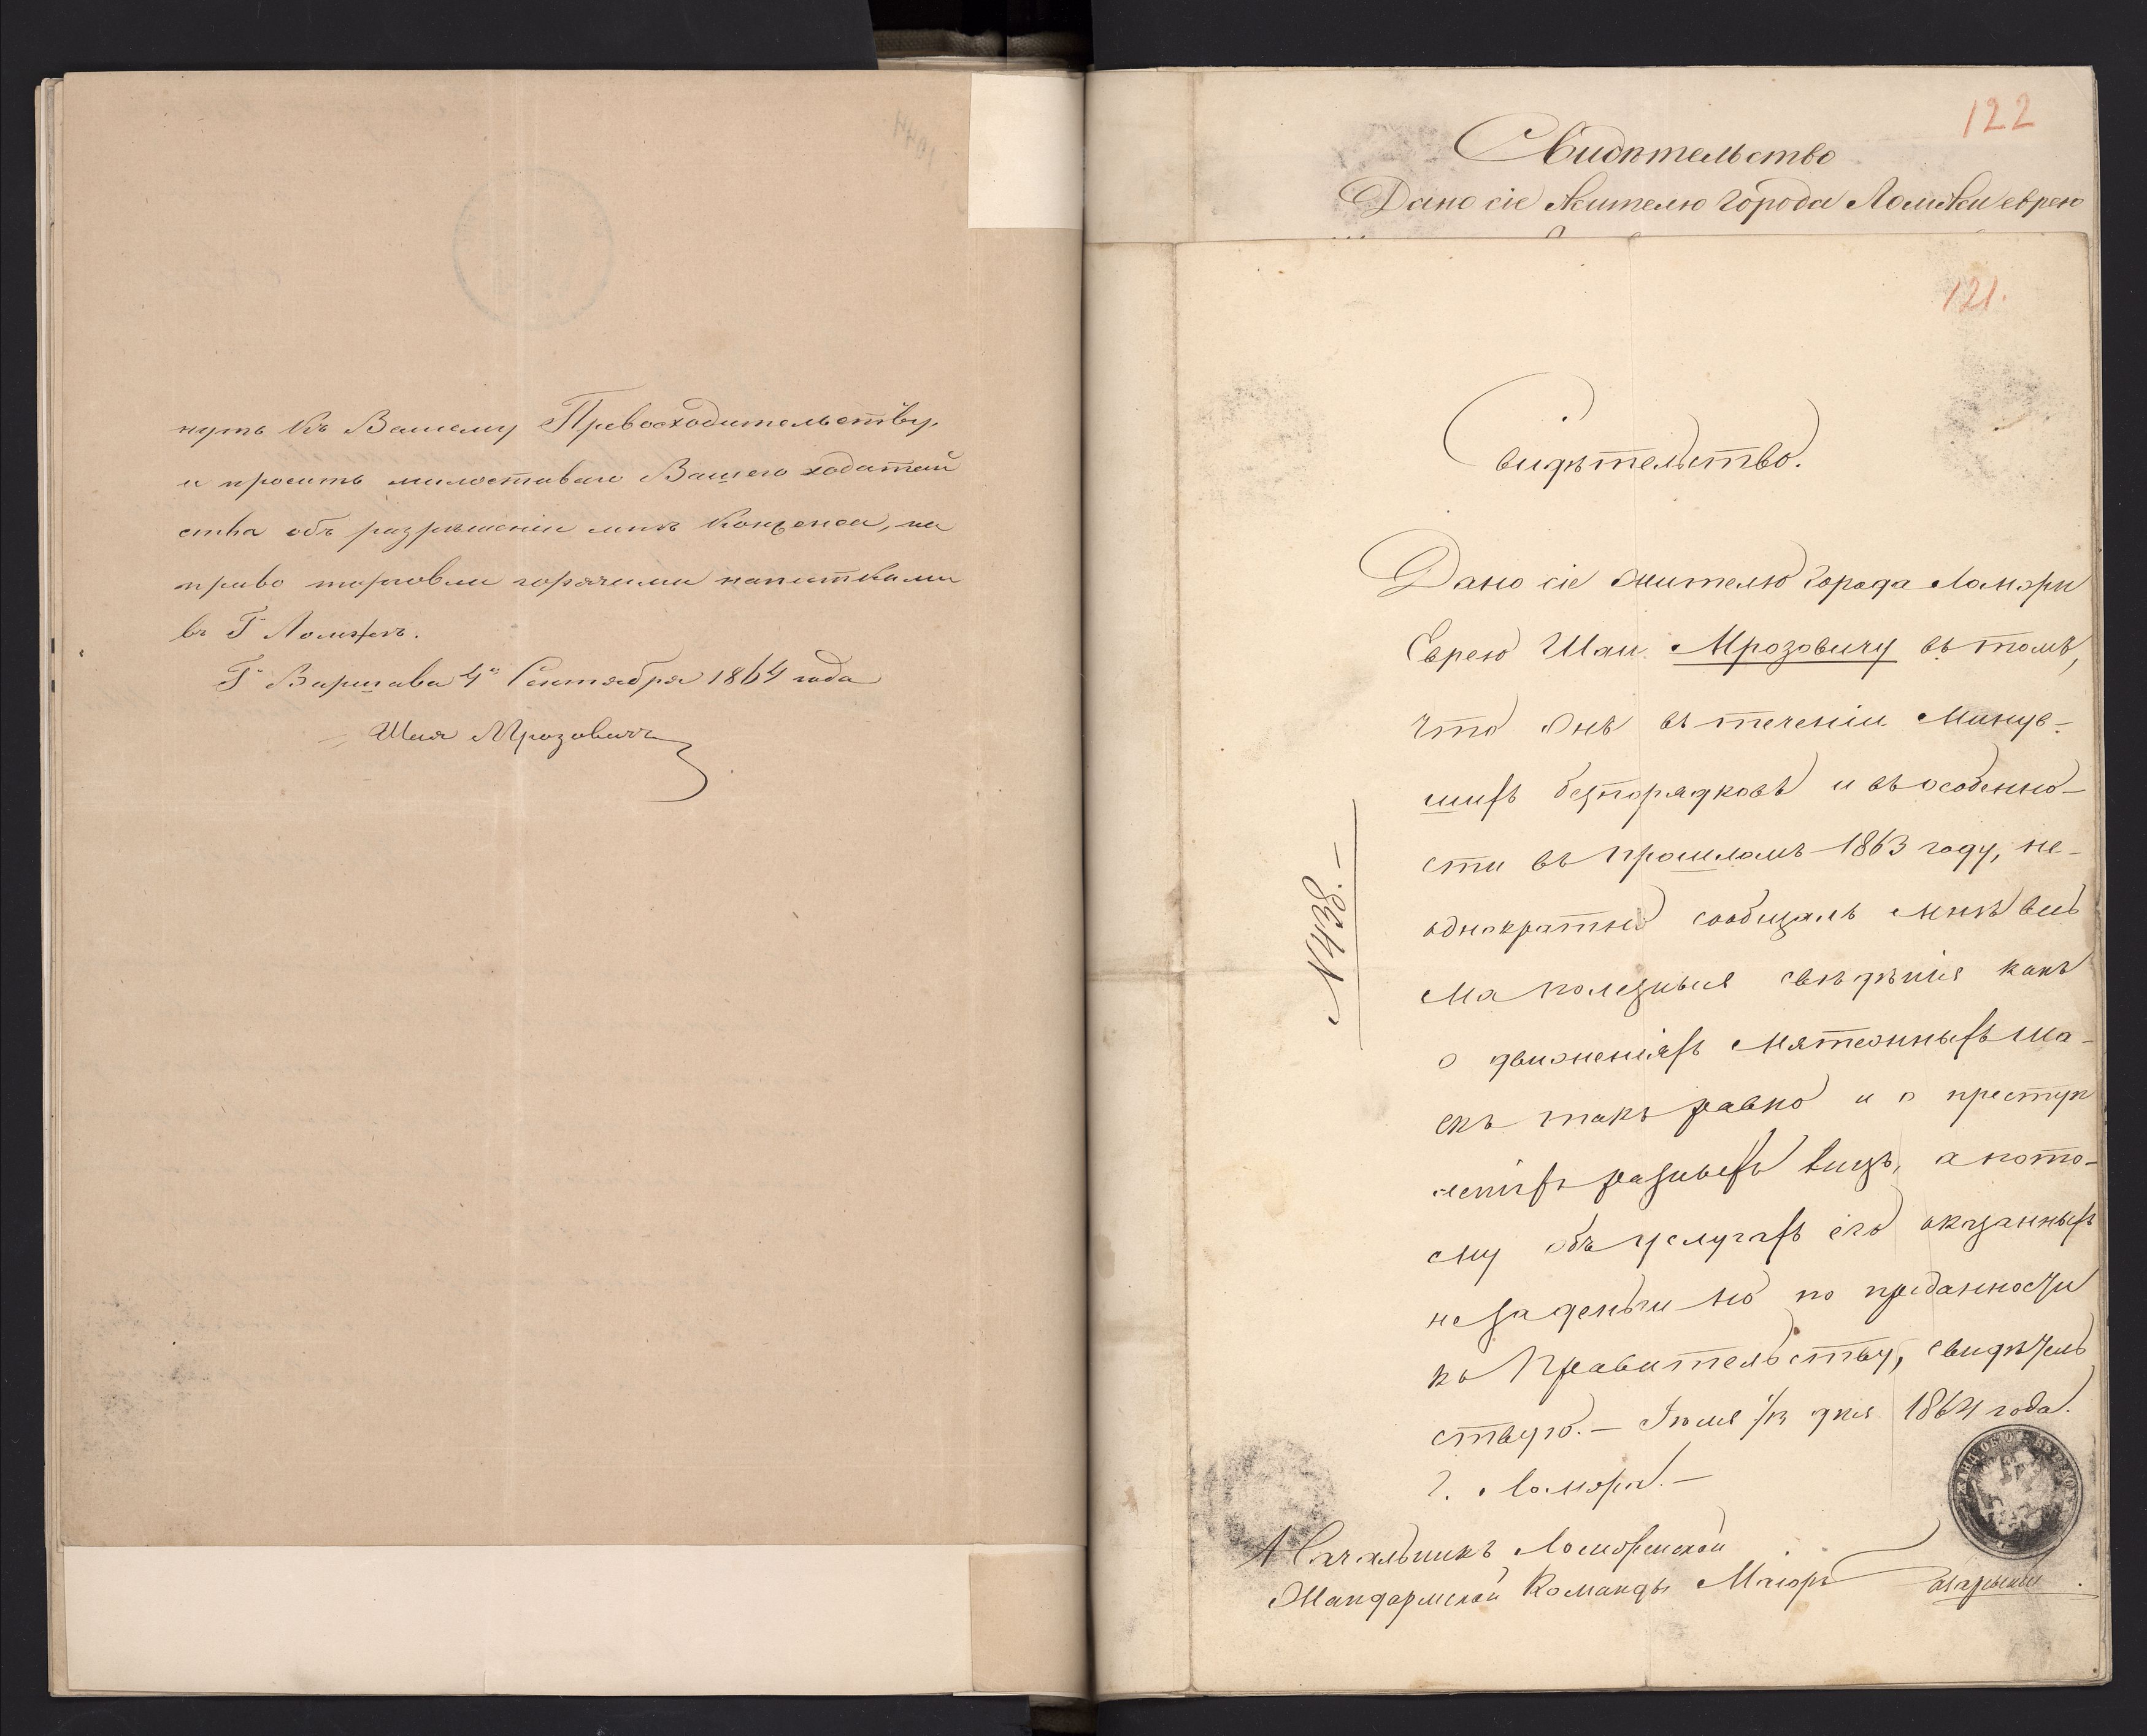 нуть къ Вашему Превосходительству,
и просить милостиваго Вашего ходатай
ства объ разрѣшеніи мнѣ Консенса, на
право торговли горячими напитками
въ Г. Ломжѣ.
Г. Варшава 4го Сентября 1864 года
Шая Мрозовичъ
122
Свидѣтельство
Дано сіе жителю города Ломжи еврею
121.
Свидѣтельство.
Дано сіе жителю города Ломжи
Еврею Шаи Мрозовичу въ томъ,
что онъ въ теченіи минув-
шихъ безпорядковъ и въ особенно-
сти въ прошломъ 1863 году, не-
однократно сообщалъ мнѣ весь
ма полезныя свѣдѣнія какъ
о движеніяхъ мятежныхъ ша-
екъ такъ равно и о преступ
леніяхъ разныхъ лицъ, а пото-
му объ услугахъ его оказанныхъ
не за деньги но по преданности
къ Правительству, свидѣтель
ствую. – Іюля 1/13 дня 1864 года.
г. Ломжа. –
N 438. –
Начальникъ Ломжинской
Жандармской Команды Маіоръ